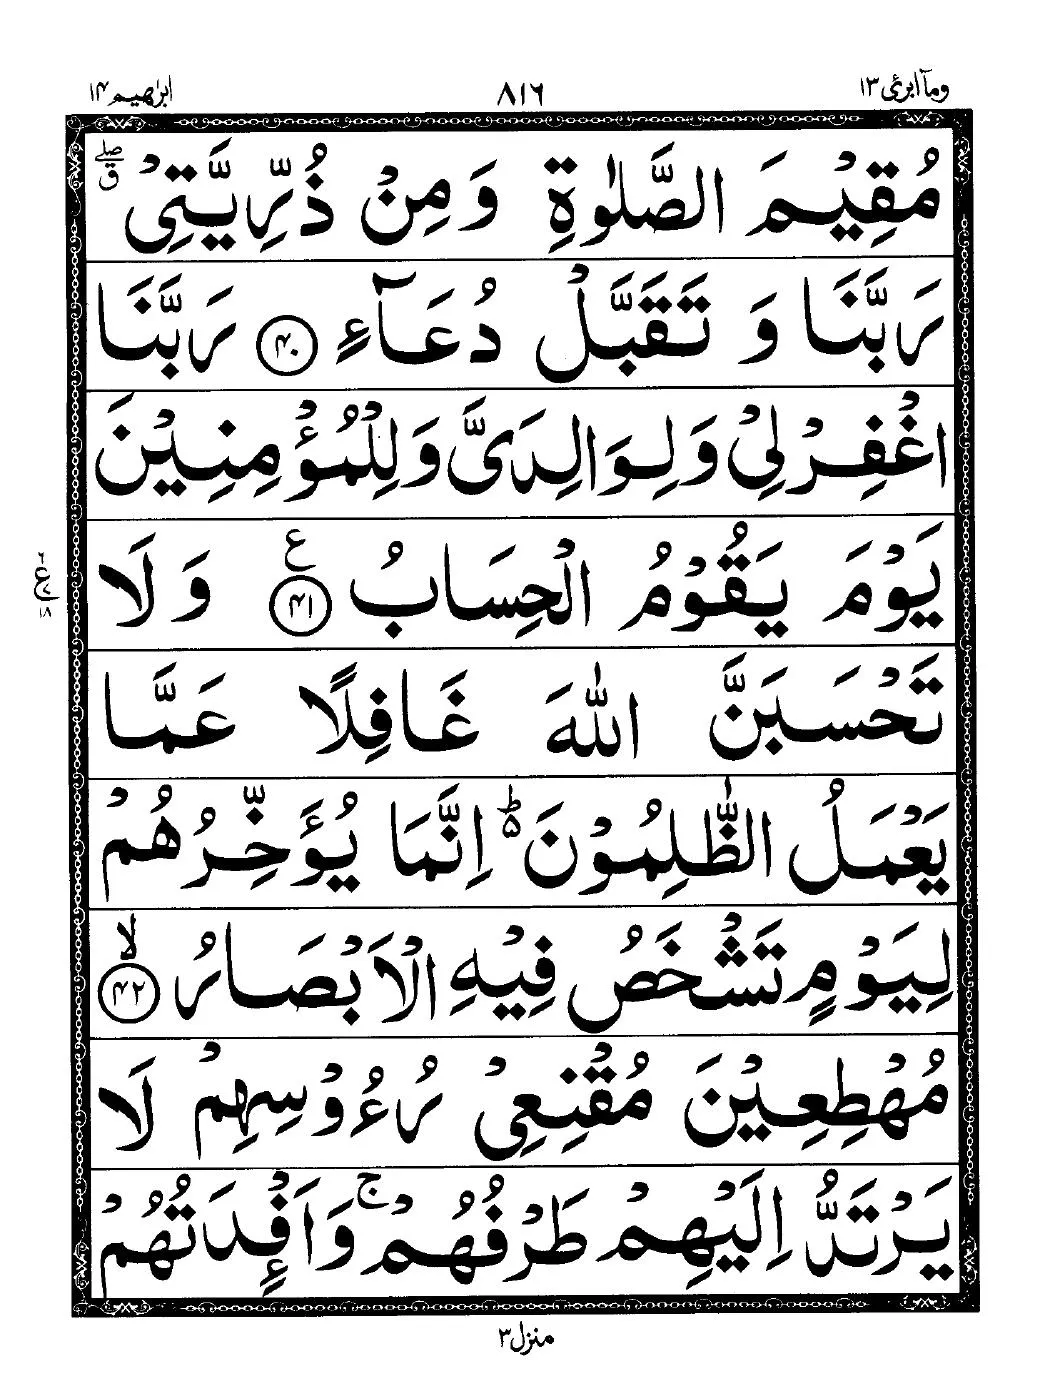 وماۤ ابرئ ١٣
٨١٦
ابرٰهيم ١٤
مُقِيْمَ الصَّلٰوةِ وَمِنْ ذُرِّيَّتِيْ ۖق
رَبَّنَا وَ تَقَبَّلْ دُعَآءِ ﴿۴۰﴾ رَبَّنَا
اغْفِرْ لِيْ وَلِوَالِدَيَّ وَلِلْمُؤْمِنِيْنَ
يَوْمَ يَقُوْمُ الْحِسَابُ ﴿۴۱﴾ ع وَلَا
تَحْسَبَنَّ اللّٰهَ غَافِلًا عَمَّا
يَعْمَلُ الظّٰلِمُوْنَ ؕ اِنَّمَا يُؤَخِّرُهُمْ
لِيَوْمٍ تَشْخَصُ فِيْهِ الْاَبْصَارُ ﴿۴۲﴾ ۙ
مُهْطِعِيْنَ مُقْنِعِيْ رُءُوْسِهِمْ لَا
يَرْتَدُّ اِلَيْهِمْ طَرْفُهُمْ ۚ وَاَفْـِٕدَتُهُمْ
منزل ٣